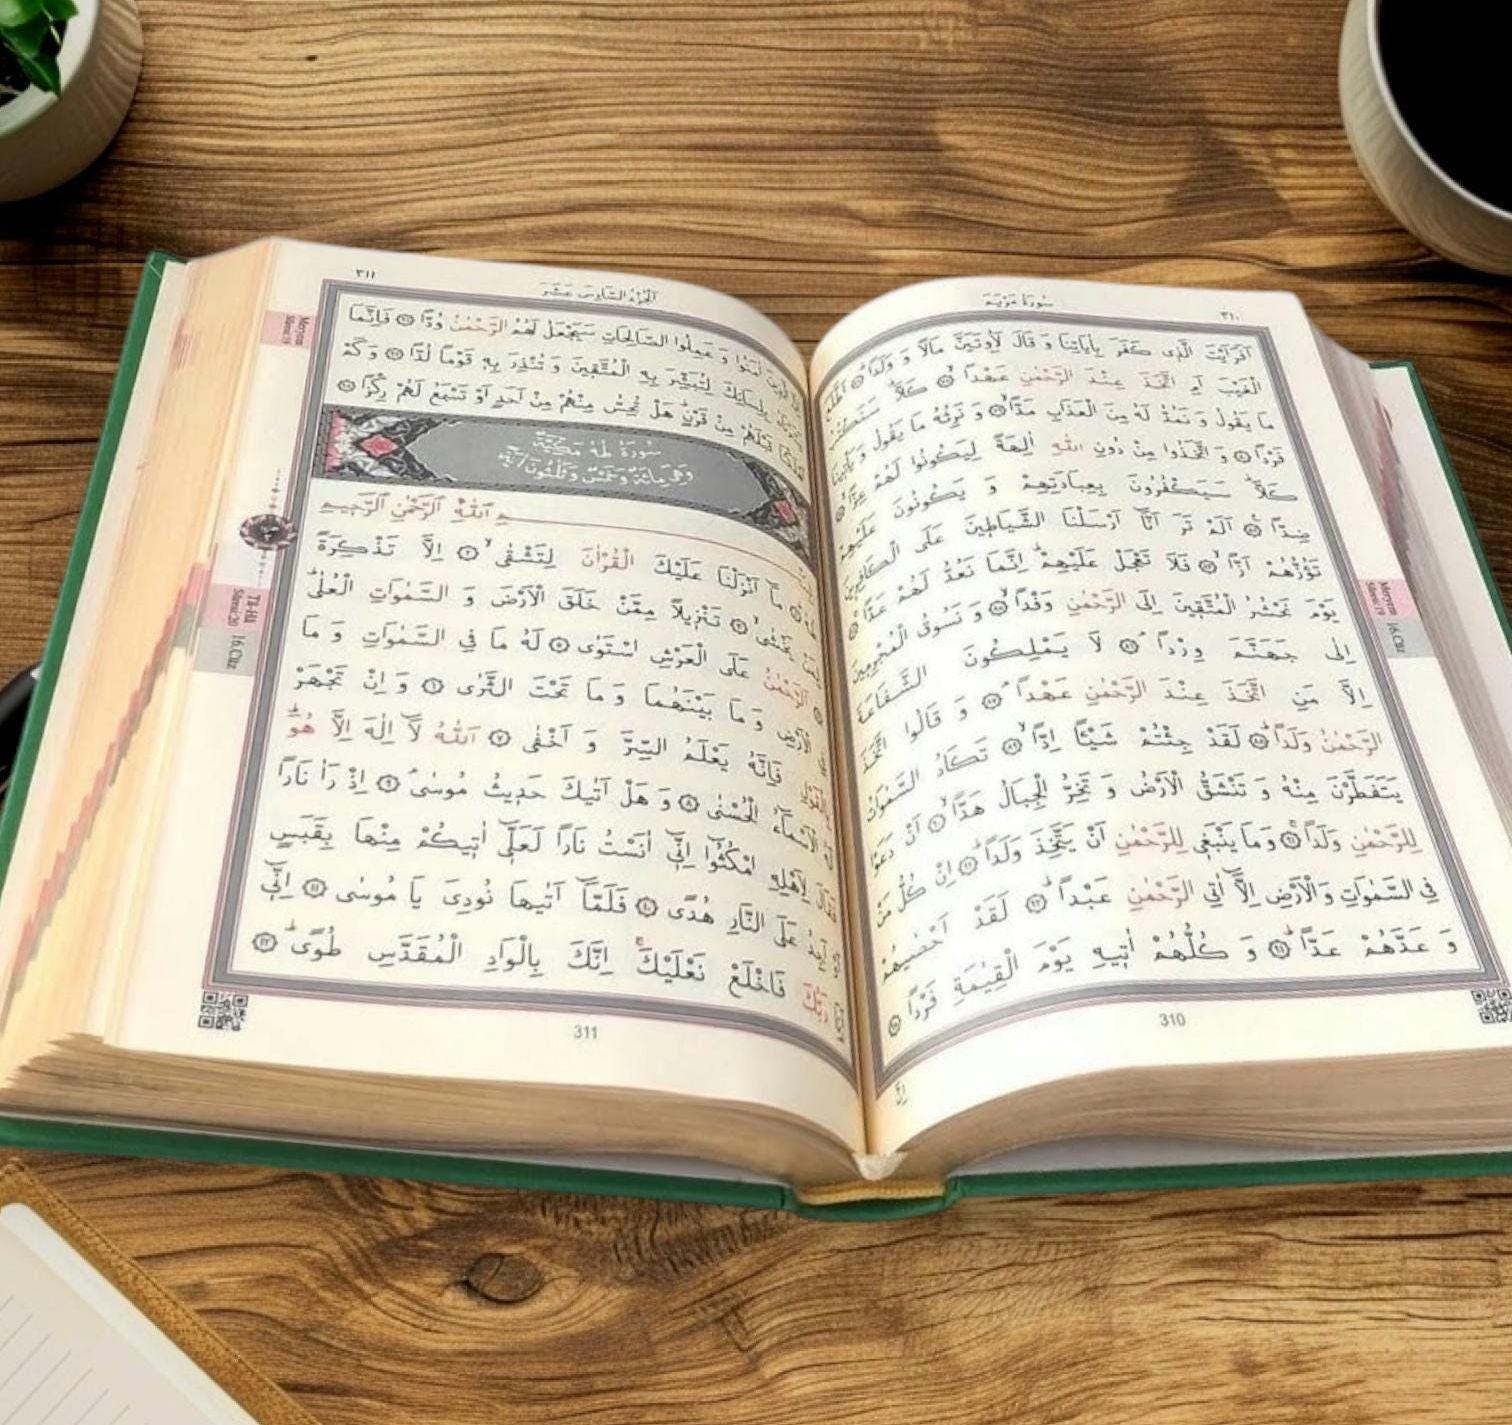 ٣١٠
سُورَةُ مَرْيَمَ
اَفَرَاَيْتَ الَّذ۪ى كَفَرَ بِاٰيَاتِنَا وَ قَالَ لَاُوتَيَنَّ مَالًا وَ وَلَدًاۜ ﴿٧٧﴾ اَطَّلَعَ
الْغَيْبَ اَمِ اتَّخَذَ عِنْدَ الرَّحْمٰنِ عَهْدًاۙ ﴿٧٨﴾ كَلَّاۜ سَنَكْتُبُ
مَا يَقُولُ وَ نَمُدُّ لَهُ مِنَ الْعَذَابِ مَدًّاۙ ﴿٧٩﴾ وَ نَرِثُهُ مَا يَقُولُ وَ يَاْت۪ينَا
فَرْدًا ﴿٨٠﴾ وَ اتَّخَذُوا مِنْ دُونِ اللّٰهِ اٰلِهَةً لِيَكُونُوا لَهُمْ عِزًّاۙ ﴿٨١﴾
كَلَّاۜ سَيَكْفُرُونَ بِعِبَادَتِهِمْ وَ يَكُونُونَ عَلَيْهِمْ
ضِدًّا۟ ﴿٨٢﴾ اَلَمْ تَرَ اَنَّٓا اَرْسَلْنَا الشَّيَاط۪ينَ عَلَى الْكَافِر۪ينَ
تَؤُزُّهُمْ اَزًّاۙ ﴿٨٣﴾ فَلَا تَعْجَلْ عَلَيْهِمْۜ اِنَّمَا نَعُدُّ لَهُمْ عَدًّاۚ ﴿٨٤﴾
يَوْمَ نَحْشُرُ الْمُتَّق۪ينَ اِلَى الرَّحْمٰنِ وَفْدًاۙ ﴿٨٥﴾ وَ نَسُوقُ الْمُجْرِم۪ينَ
اِلٰى جَهَنَّمَ وِرْدًاۢ ﴿٨٦﴾ لَا يَمْلِكُونَ الشَّفَاعَةَ
اِلَّا مَنِ اتَّخَذَ عِنْدَ الرَّحْمٰنِ عَهْدًاۢ ﴿٨٧﴾ وَ قَالُوا اتَّخَذَ
الرَّحْمٰنُ وَلَدًاۜ ﴿٨٨﴾ لَقَدْ جِئْتُمْ شَيْـًٔا اِدًّاۙ ﴿٨٩﴾ تَكَادُ السَّمٰوَاتُ
يَتَفَطَّرْنَ مِنْهُ وَ تَنْشَقُّ الْاَرْضُ وَ تَخِرُّ الْجِبَالُ هَدًّاۙ ﴿٩٠﴾ اَنْ دَعَوْا
لِلرَّحْمٰنِ وَلَدًاۚ ﴿٩١﴾ وَ مَا يَنْبَغ۪ى لِلرَّحْمٰنِ اَنْ يَتَّخِذَ وَلَدًاۜ ﴿٩٢﴾ اِنْ كُلُّ مَنْ
فِى السَّمٰوَاتِ وَ الْاَرْضِ اِلَّٓا اٰتِى الرَّحْمٰنِ عَبْدًاۜ ﴿٩٣﴾ لَقَدْ اَحْصٰيهُمْ
وَ عَدَّهُمْ عَدًّاۜ ﴿٩٤﴾ وَ كُلُّهُمْ اٰت۪يهِ يَوْمَ الْقِيٰمَةِ فَرْدًا ﴿٩٥﴾
اِنَّ
310
Meryem
Sûresi:19
16.Cüz
٣١١
اَلْجُزْءُ السَّادِسَ عَشَرَ
الَّذ۪ينَ اٰمَنُوا وَ عَمِلُوا الصَّالِحَاتِ سَيَجْعَلُ لَهُمُ الرَّحْمٰنُ وُدًّا ﴿٩٦﴾ فَاِنَّمَا
يَسَّرْنَاهُ بِلِسَانِكَ لِتُبَشِّرَ بِهِ الْمُتَّق۪ينَ وَ تُنْذِرَ بِه۪ قَوْمًا لُدًّا ﴿٩٧﴾ وَ كَمْ
اَهْلَكْنَا قَبْلَهُمْ مِنْ قَرْنٍۜ هَلْ تُحِسُّ مِنْهُمْ مِنْ اَحَدٍ اَوْ تَسْمَعُ لَهُمْ رِكْزًا ﴿٩٨﴾
سُورَةُ طٰهٰ مَكِّيَّةٌ
وَهِىَ مِائَةٌ وَخَمْسٌ وَثَلٰثُونَ اٰيَةً
بِسْمِ اللّٰهِ الرَّحْمٰنِ الرَّح۪يمِ
طٰهٰۜ ﴿١﴾ مَٓا اَنْزَلْنَا عَلَيْكَ الْقُرْاٰنَ لِتَشْقٰىۙ ﴿٢﴾ اِلَّا تَذْكِرَةً
لِمَنْ يَخْشٰىۙ ﴿٣﴾ تَنْز۪يلًا مِمَّنْ خَلَقَ الْاَرْضَ وَ السَّمٰوَاتِ الْعُلٰىۜ
﴿٤﴾ اَلرَّحْمٰنُ عَلَى الْعَرْشِ اسْتَوٰى ﴿٥﴾ لَهُ مَا فِى السَّمٰوَاتِ وَ مَا
فِى الْاَرْضِ وَ مَا بَيْنَهُمَا وَ مَا تَحْتَ الثَّرٰى ﴿٦﴾ وَ اِنْ تَجْهَرْ
بِالْقَوْلِ فَاِنَّهُ يَعْلَمُ السِّرَّ وَ اَخْفٰى ﴿٧﴾ اَللّٰهُ لَٓا اِلٰهَ اِلَّا هُوَۜ
لَهُ الْاَسْمَٓاءُ الْحُسْنٰى ﴿٨﴾ وَ هَلْ اَتٰيكَ حَد۪يثُ مُوسٰىۢ ﴿٩﴾ اِذْ رَاٰ نَارًا
فَقَالَ لِاَهْلِهِ امْكُثُٓوا اِنّ۪ٓى اٰنَسْتُ نَارًا لَعَلّ۪ٓى اٰت۪يكُمْ مِنْهَا بِقَبَسٍ
اَوْ اَجِدُ عَلَى النَّارِ هُدًى ﴿١٠﴾ فَلَمَّٓا اَتٰيهَا نُودِىَ يَا مُوسٰى ﴿١١﴾ اِنّ۪ٓى
اَنَا رَبُّكَ فَاخْلَعْ نَعْلَيْكَۚ اِنَّكَ بِالْوَادِ الْمُقَدَّسِ طُوًىۜ ﴿١٢﴾
311
Meryem
Sûresi:19
Tâ-Hâ
Sûresi:20
16.Cüz